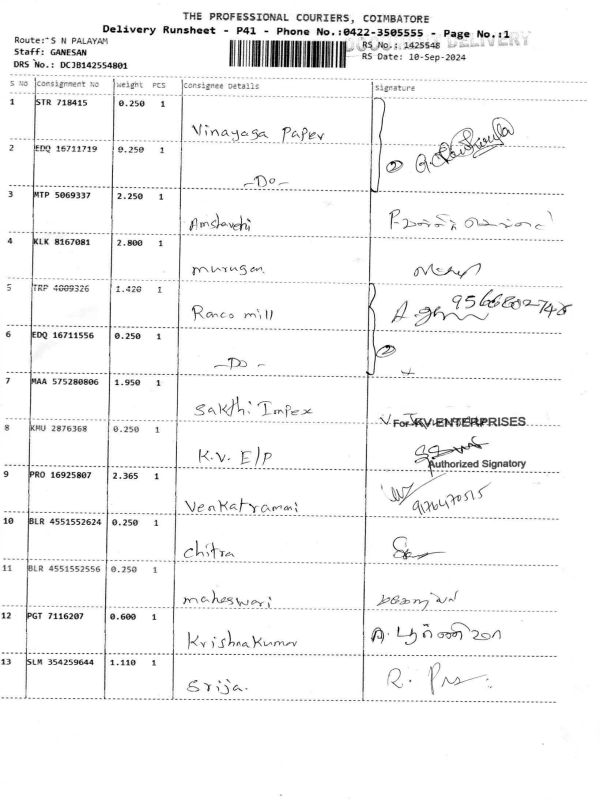 THE PROFESSIONAL COURIERS, COIMBATORE
Delivery Runsheet - P41 - Phone No.:0422-3505555 - Page No.:1
DELIVERY
Route: S N PALAYAM
RS No.: 1425548
Staff: GANESAN
RS Date: 10-Sep-2024
DRS No.: DCJB142554801
S No Consignment No Weight PCS Consignee Details Signature
1 STR 718415 0.250 1
Vinayaga Paper
2 EDQ 16711719 0.250 1
②
-Do-
3 MTP 5069337 2.250 1
4 KLK 8167081 2.800 1
murugan
5 TRP 4009326 1.420 1
Ranco mill
9566802748
6 EDQ 16711556 0.250 1
②
-Do-
7 MAA 575280806 1.950 1
Sakthi Impex
8 KMU 2876368 0.250 1
For KV ENTERPRISES
K.V. E/P
Authorized Signatory
9 PRO 16925807 2.365 1
Venkatramani
9176470515
10 BLR 4551552624 0.250 1
chitra
11 BLR 4551552556 0.250 1
maheswari
12 PGT 7116207 0.600 1
Krishnakumar
13 SLM 354259644 1.110 1
Srija.